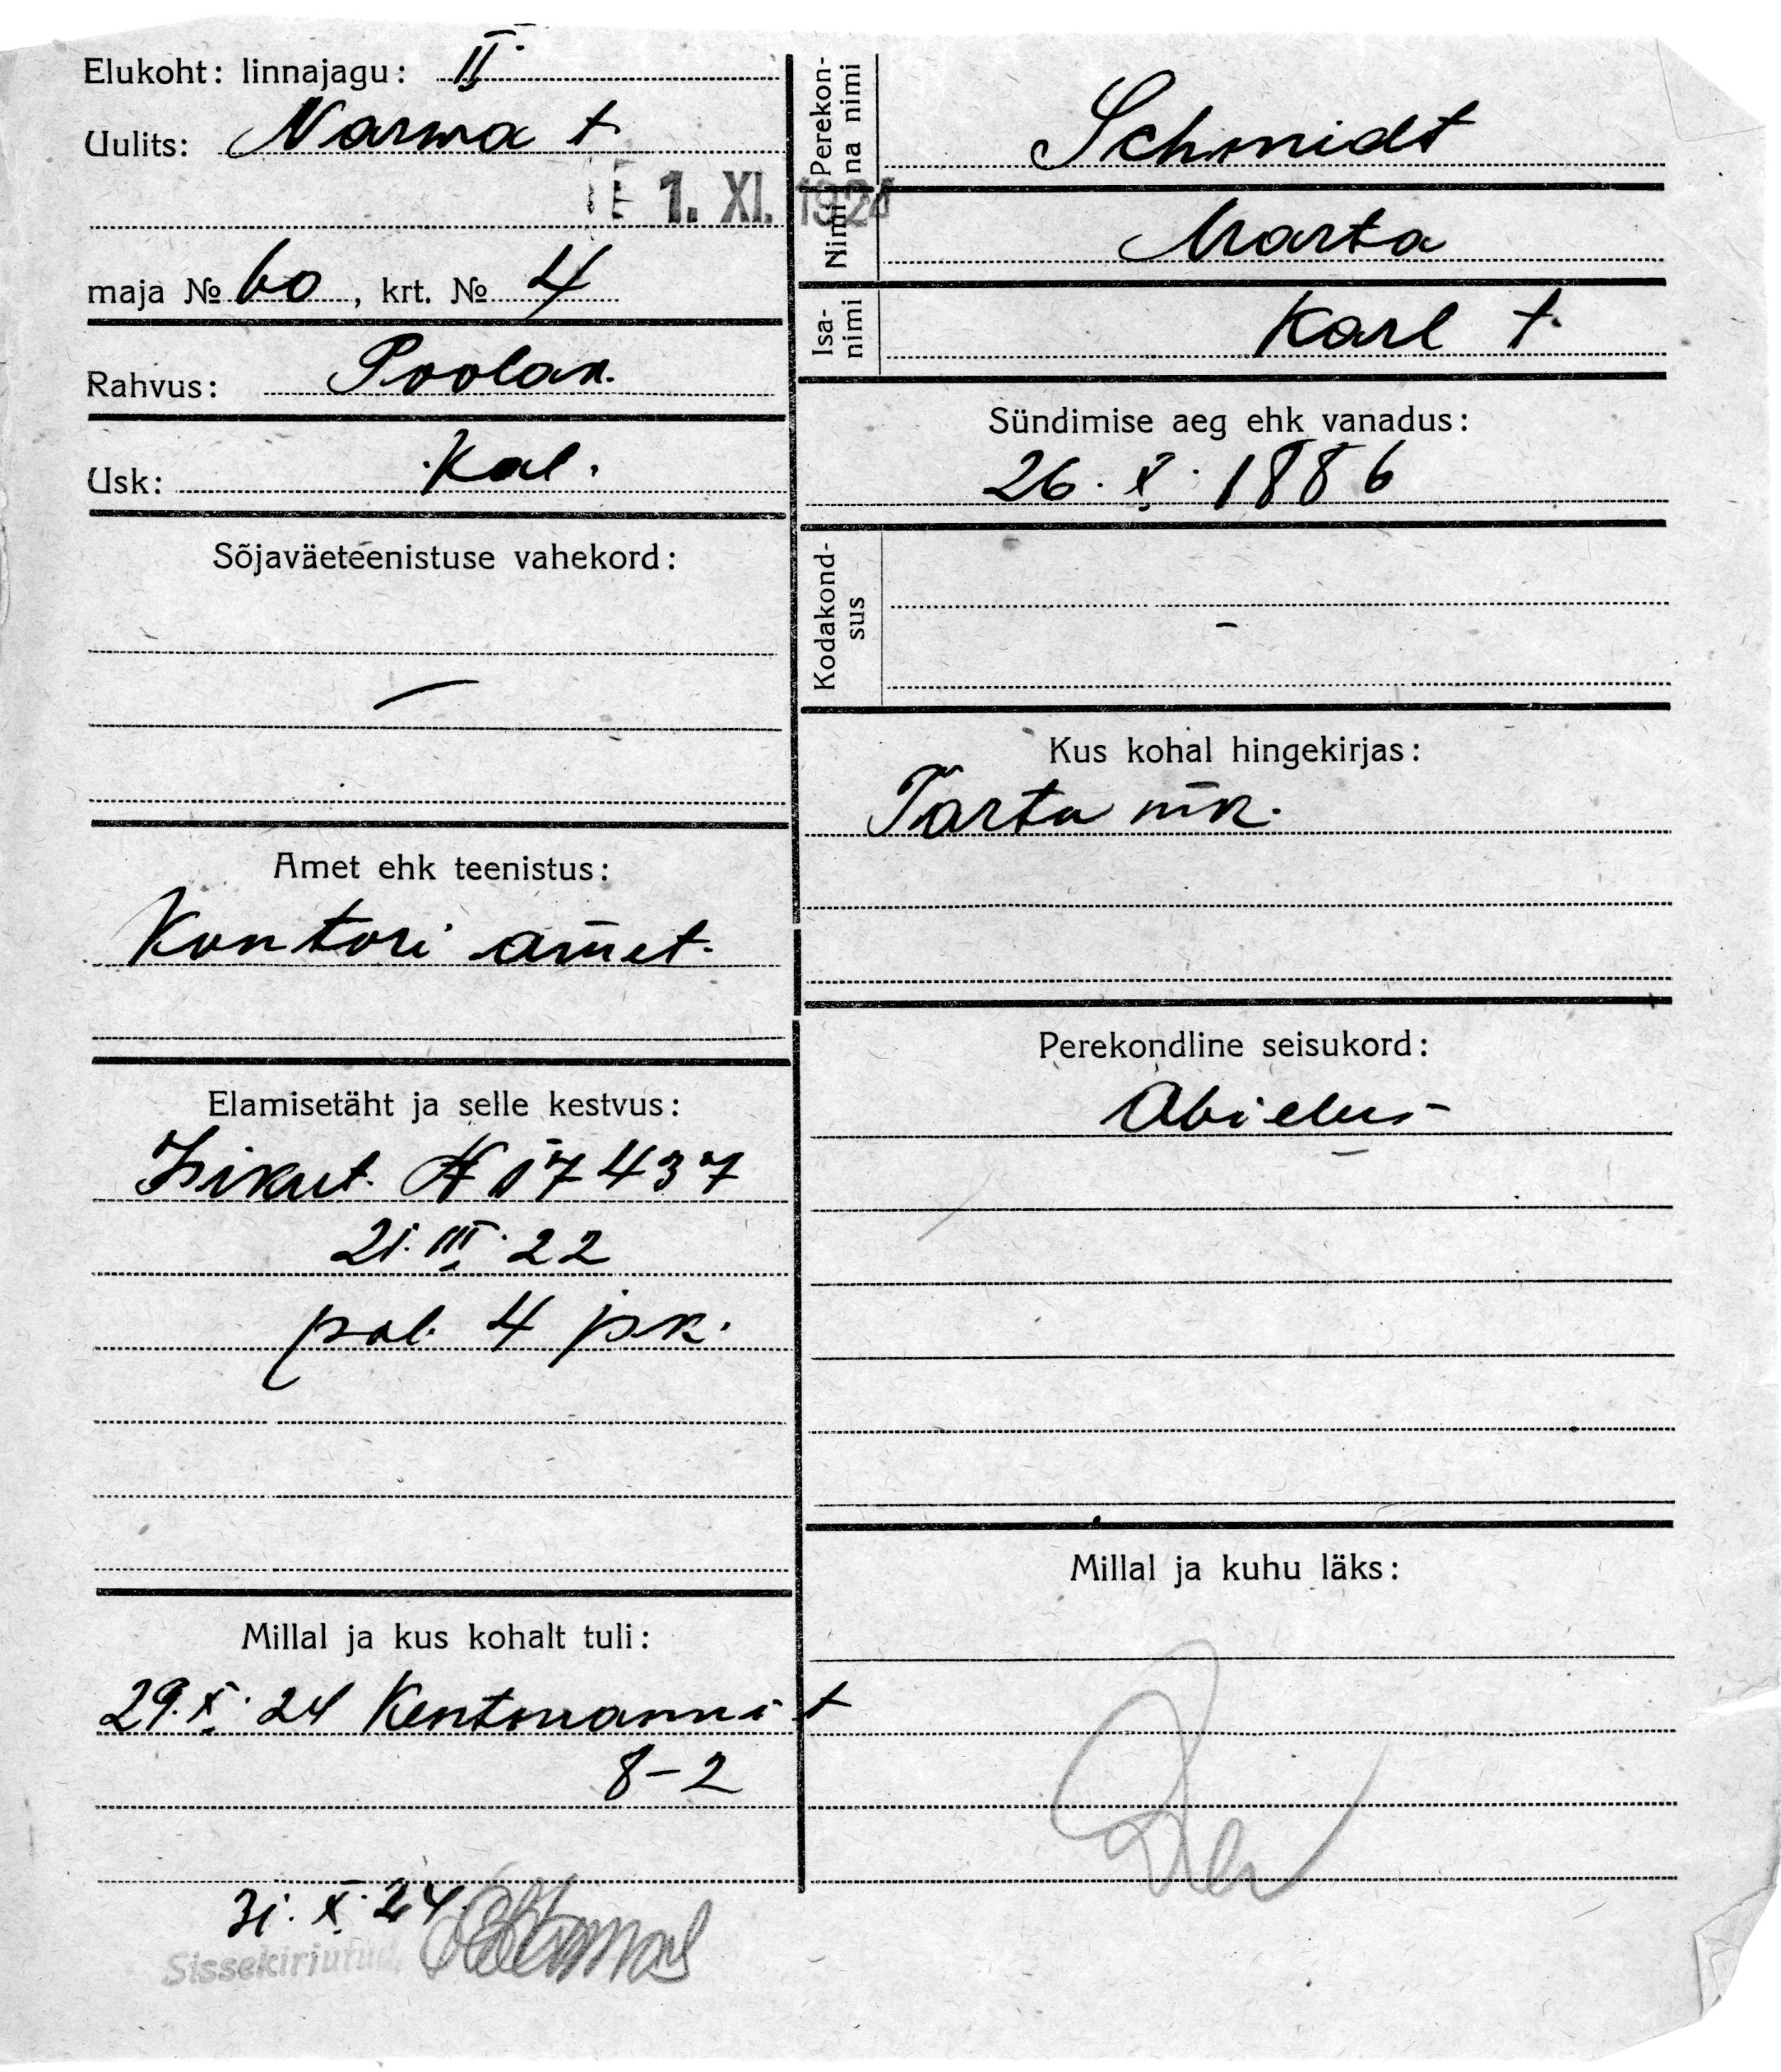 Elukoht: linnajagu: II.
Uulits: Narwa t.
E 1. XI. 1924
maja № 60, krt. № 4
Rahvus: Poolak.
Usk: Kat.
Sõjaväeteenistuse vahekord:
—
Amet ehk teenistus:
Kontori amet.
Elamisetäht ja selle kestvus:
Isikut. N 17437
21. III. 22
pol. 4 jsk.
Millal ja kus kohalt tuli:
29. X. 24 Kentmanni t
8-2
31. X. 24.
Sissekirjutud.
Perekonna nimi
Schmidt
Nimi
Marta
Isanimi
Karl t.
Sündimise aeg ehk vanadus:
26. X. 1886
Kodakondsus
–
Kus kohal hingekirjas:
Tartu mk.
Perekondline seisukord:
Abielus
Millal ja kuhu läks: